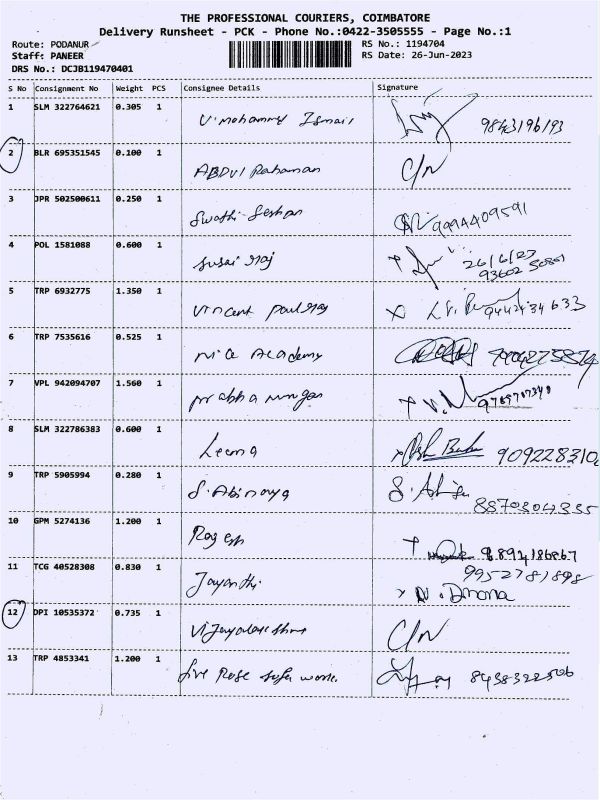 THE PROFESSIONAL COURIERS, COIMBATORE
Delivery Runsheet - PCK - Phone No.:0422-3505555 - Page No.:1
Route: PODANUR RS No.: 1194704
Staff: PANEER RS Date: 26-Jun-2023
DRS No.: DCJB119470401
S No Consignment No Weight PCS Consignee Details Signature
1 SLM 322764621 0.305 1 V. Mohammed Ismail 9843196193
2 BLR 695351545 0.100 1 ABDUl Rahaman C/N
3 JPR 502500611 0.250 1 Swathi Seshan 9994409591
4 POL 1581088 0.600 1 Susai Raj 26/6/23
5 TRP 6932775 1.350 1 Vincent paul Raj 9442434633
6 TRP 7535616 0.525 1 nice Academy
7 VPL 942094707 1.560 1 prabha murugan
8 SLM 322786383 0.600 1 Leena
9 TRP 5905994 0.280 1 S. Abinaya 8870304335
10 GPM 5274136 1.200 1 Rogesh
11 TCG 40528308 0.830 1 Jayanthi 9952781898
12 DPI 10535372 0.735 1 C/N
13 TRP 4853341 1.200 1 five Rose Sofa work. 8438322506